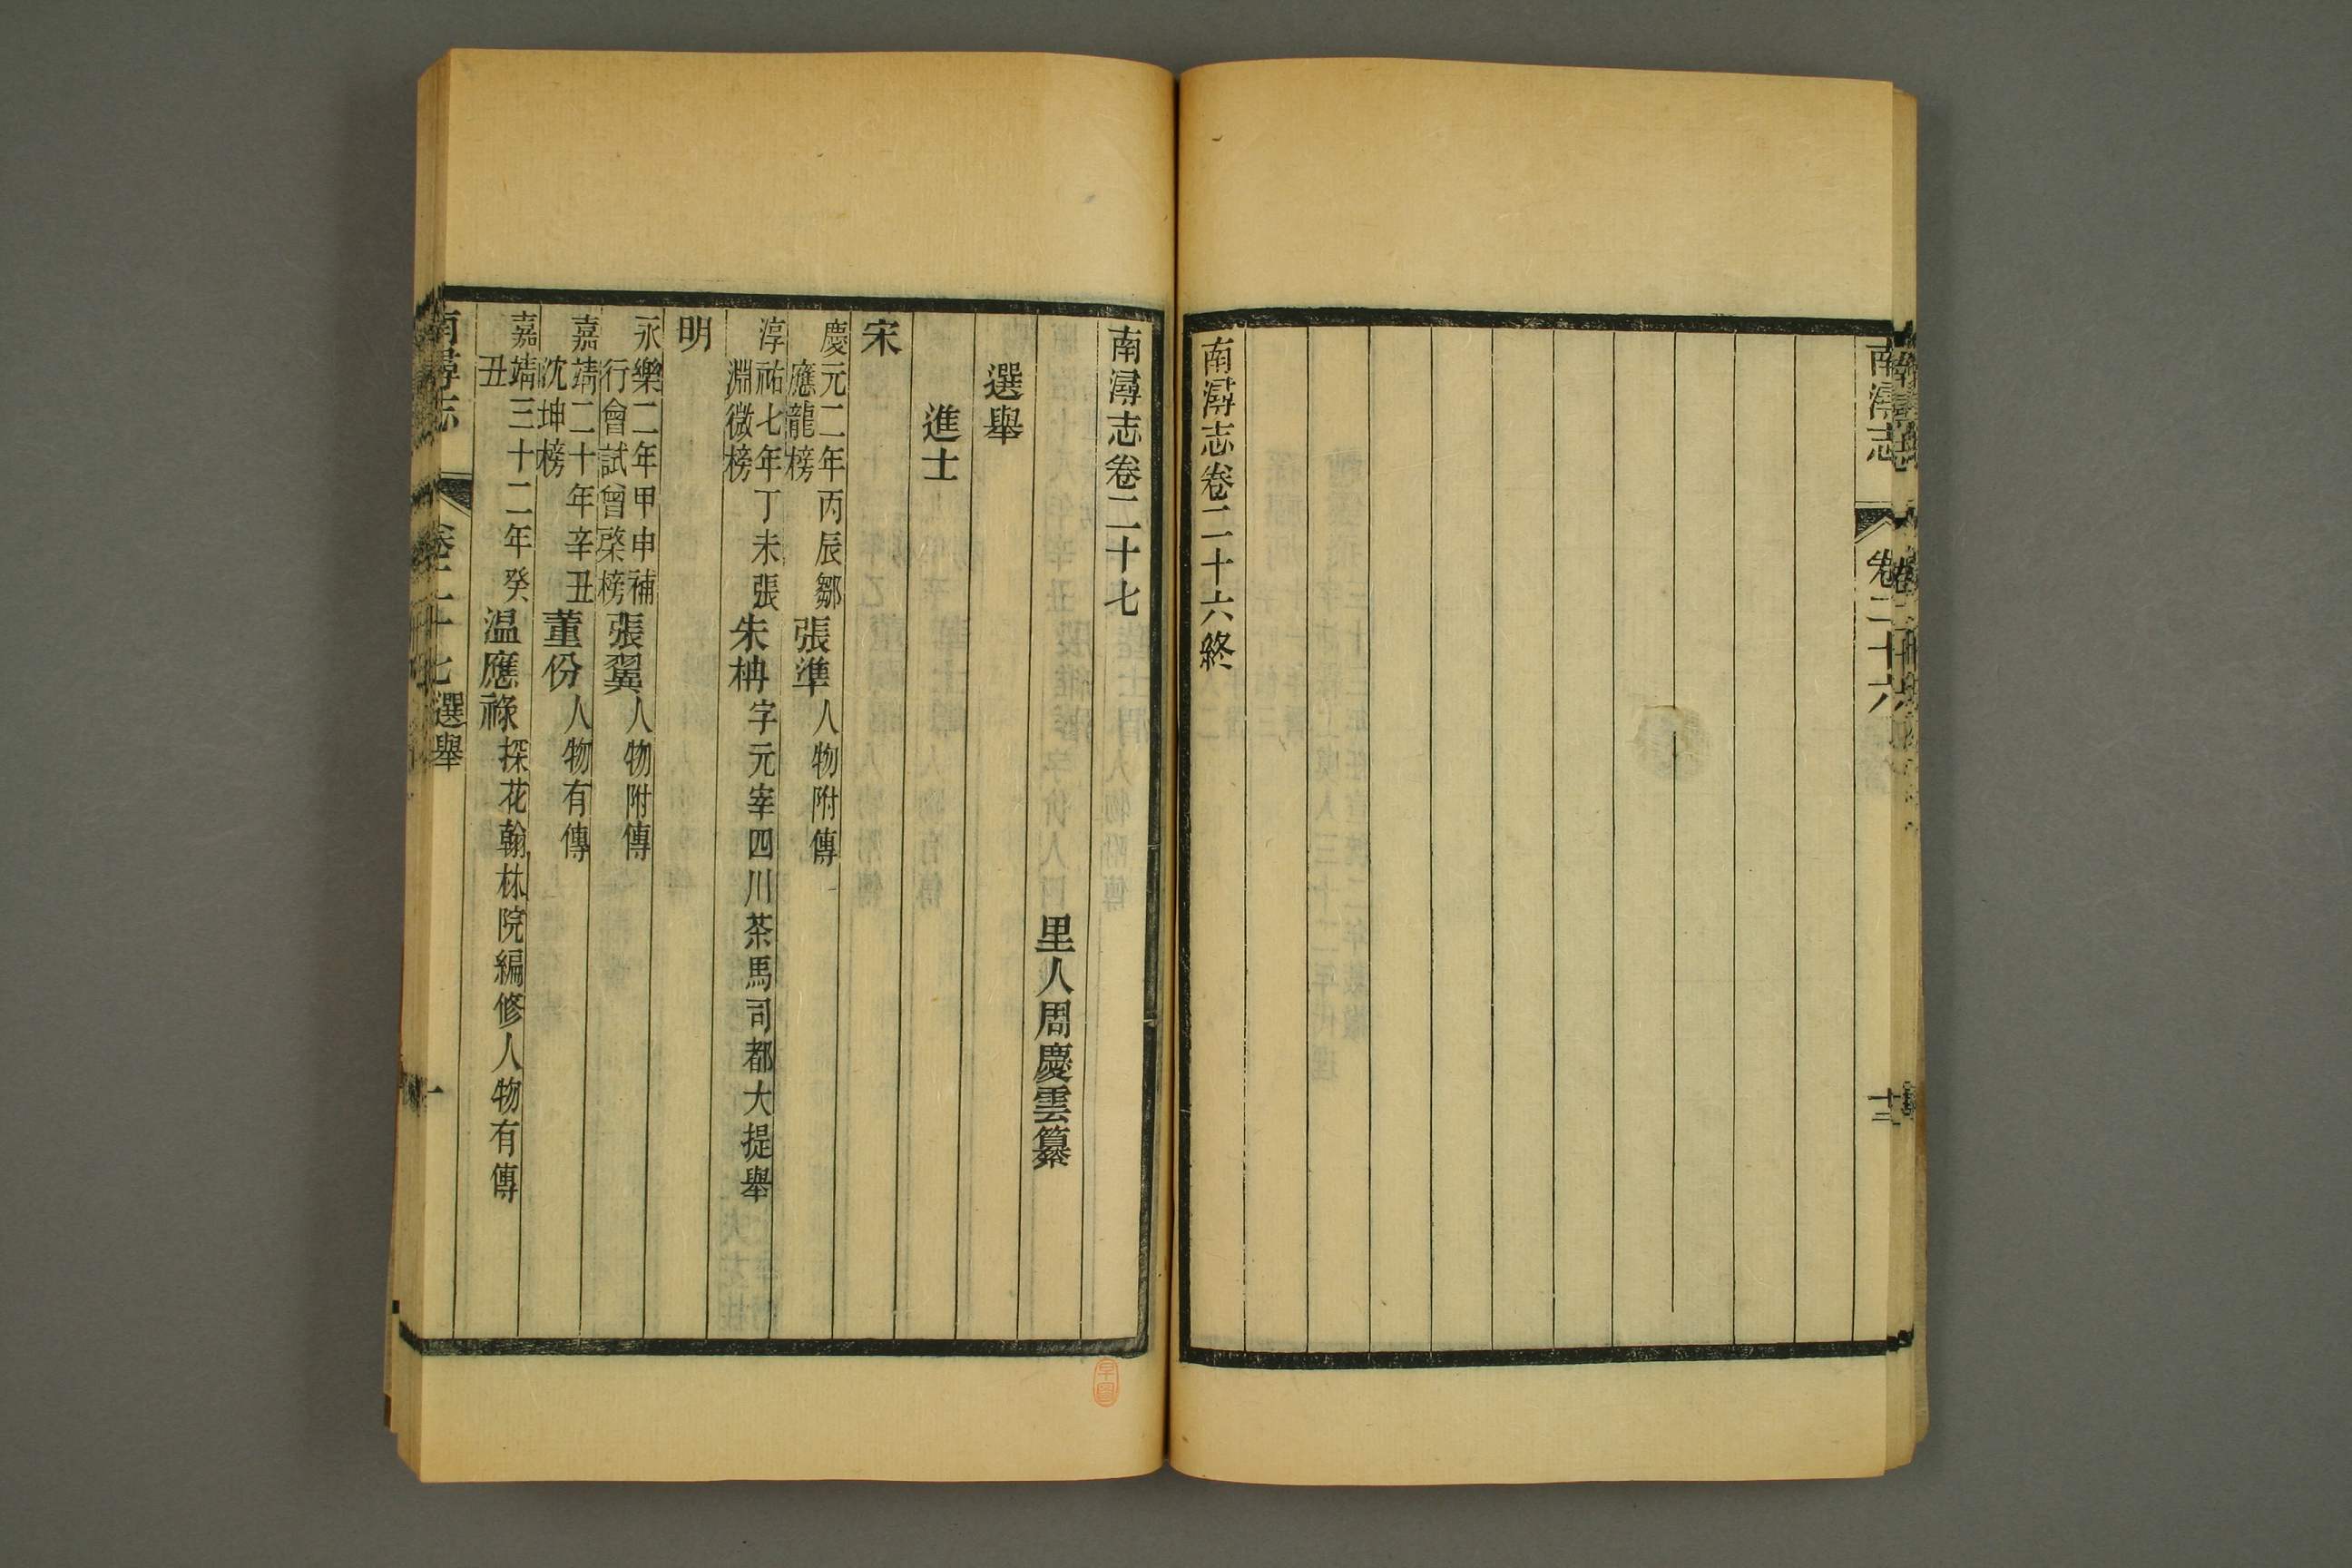 南潯志
卷二十六
十三
南潯志卷二十六終
南潯志卷二十七
里人周慶雲纂
選舉
進士
宋
慶元二年丙辰鄒
應龍榜
張準
人物附傳
淳祐七年丁未張
淵微榜
朱𣑱
字元宰四川茶馬司都大提舉
明
永樂二年甲申補
行會試曾棨榜
張翼
人物附傳
嘉靖二十年辛丑
沈坤榜
董份
人物有傳
嘉靖三十二年癸
丑
温應祿
探花翰林院編修人物有傳
南潯志
卷二十七
選舉
一